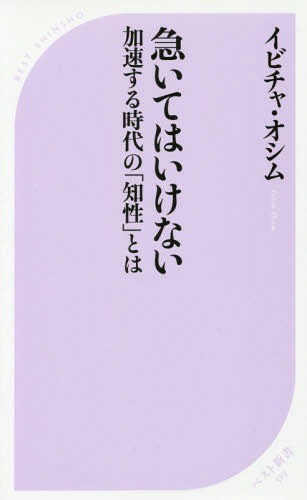 イビチャ・オシム
Ivica Osim
急いてはいけない
加速する時代の「知性」とは
BEST SHINSHO
ベスト新書